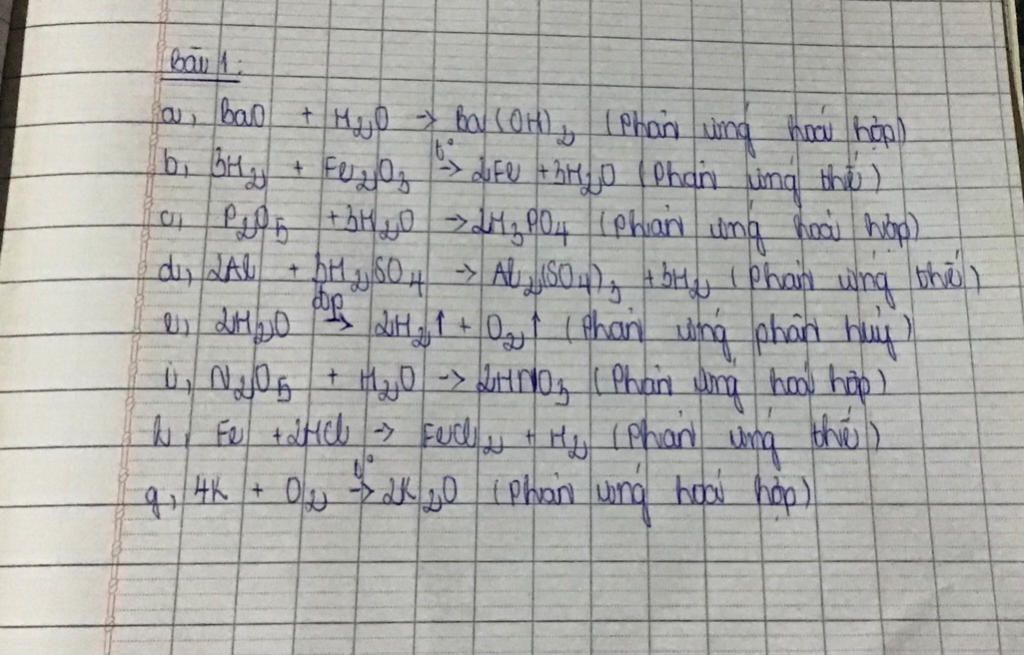 Bài 1:
a, BaO + H₂O → Ba(OH)₂ (Phản ứng hoá hợp)
b, 3H₂ + Fe₂O₃ t°→ 2Fe + 3H₂O (Phản ứng thế)
c, P₂O₅ + 3H₂O → 2H₃PO₄ (Phản ứng hoá hợp)
d, 2Al + 3H₂SO₄ → Al₂(SO₄)₃ + 3H₂ (Phản ứng thế)
e, 2H₂O đp→ 2H₂↑ + O₂↑ (Phản ứng phân huỷ)
i, N₂O₅ + H₂O → 2HNO₃ (Phản ứng hoá hợp)
h, Fe + 2HCl → FeCl₂ + H₂ (Phản ứng thế)
g, 4K + O₂ t°→ 2K₂O (Phản ứng hoá hợp)